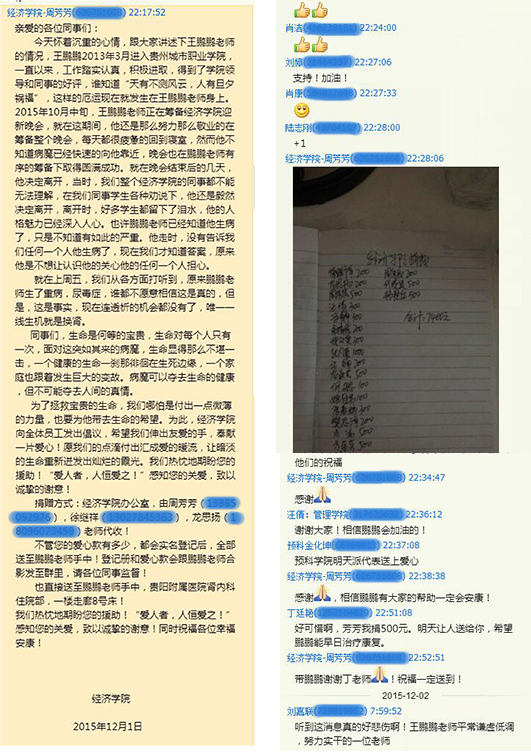 经济学院-周芳芳 22:17:52
亲爱的各位同事们：
今天怀着沉重的心情，跟大家讲述下王鹏鹏老师
的情况，王鹏鹏2013年3月进入贵州城市职业学院，
一直以来，工作踏实认真，积极进取，得到了学院领
导和同事的好评，谁知道“天有不测风云，人有旦夕
祸福”，这样的厄运现在就发生在王鹏鹏老师身上。
2015年10月中旬，王鹏鹏老师正在筹备经济学院迎
新晚会，就在这期间，他还是那么努力那么敬业的在
筹备整个晚会，每天都很疲惫的回到寝室，然而他不
知道病魔已经快速的向他靠近，晚会也在鹏鹏老师有
序的筹备下取得圆满成功。就在晚会结束后的几天，
他决定离开，当时，我们整个经济学院的同事都不能
无法理解，在我们同事学生各种劝说下，他还是毅然
决定离开，离开时，好多学生都留下了泪水，他的人
格魅力已经深入人心。也许鹏鹏老师已经知道他生病
了，只是不知道有如此的严重。他走时，没有告诉我
们任何一个人他生病了，现在我们才知道答案，原来
他是不想让认识他的关心他的任何一个人担心。
就在上周五，我们从各方面打听到，原来鹏鹏老
师生了重病，尿毒症，谁都不愿意相信这是真的，但
是，这是事实，现在连透析的机会都没有了，唯一一
线生机就是换肾。
同事们，生命是何等的宝贵，生命对每个人只有
一次，面对这突如其来的病魔，生命显得那么不堪一
击，一个健康的生命一刹那徘徊在生死边缘，一个家
庭也跟着发生巨大的变故。病魔可以夺去生命的健康
，但不可能夺去人间的真情。
为了拯救宝贵的生命，我们哪怕是付出一点微薄
的力量，也要为他带去生命的希望。为此，经济学院
向全体员工发出倡议，希望我们伸出友爱的手，奉献
一片爱心！愿我们的点滴付出汇成爱的暖流，让暗淡
的生命重新迸发出灿烂的霞光。我们热忱地期盼您的
援助！“爱人者，人恒爱之！”感知您的关爱，致以
诚挚的谢意！
捐赠方式：经济学院办公室，由周芳芳（
），徐继祥（），龙思扬（
）老师代收！
不管您的爱心款有多少，都会实名登记后，全部
送至鹏鹏老师手中！登记册和爱心款会跟鹏鹏老师合
影发至群里，请各位同事监督！
也直接送至鹏鹏老师手中，贵阳附属医院肾内科
住院部，一楼走廊8号床！
我们热忱地期盼您的援助！“爱人者，人恒爱之！”
感知您的关爱，致以诚挚的谢意！同时祝福各位幸福
安康！
经济学院
2015年12月1日
肖洁 22:24:00
刘婷 22:27:06
支持！加油！
肖康 22:27:33
陆志刚 22:28:00
+1
经济学院-周芳芳 22:28:06
他们的祝福
经济学院-周芳芳 22:34:47
感谢
汪倩：管理学院 22:36:12
谢谢大家！相信鹏鹏会加油的！
预科金化坤 22:37:08
预科学院明天派代表送上爱心
经济学院-周芳芳 22:38:38
感谢，相信鹏鹏有大家的帮助一定会安康！
丁廷艳 22:51:08
好可惜啊，芳芳我捐500元。明天让人送给你，希望
鹏鹏能早日治疗康复。
经济学院-周芳芳 22:52:51
带鹏鹏谢谢丁老师！祝福一定送到！
2015-12-02
刘嘉联 7:59:52
听到这消息真的好悲伤啊！王鹏鹏老师平常谦虚低调
，努力实干的一位老师